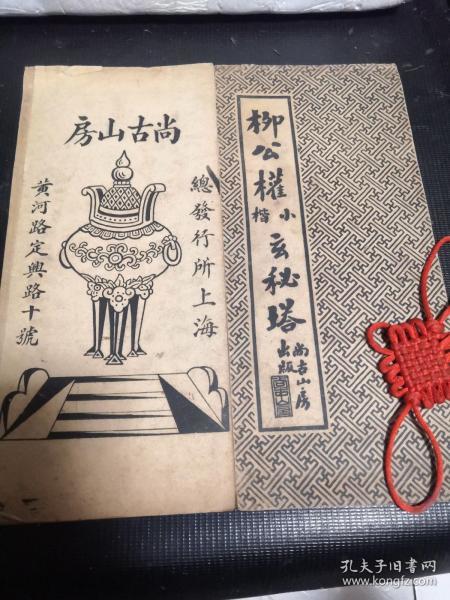 尚古山房
總發行所上海
黃河路定興路十號
柳公權小楷玄秘塔
尚古山房出版
孔夫子旧书网
www.kongfz.com